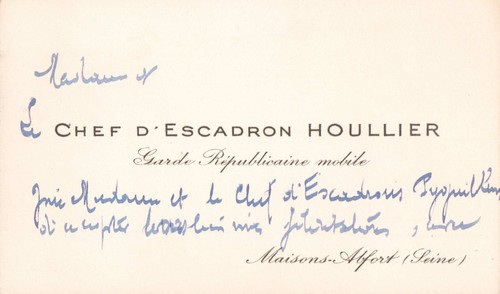 Madame et
Le CHEF D'ESCADRON HOULLIER
Garde Républicaine mobile
Prie Madame et le Chef d'Escadrons
d'accepter leurs félicitations, avec
Maisons-Alfort (Seine)